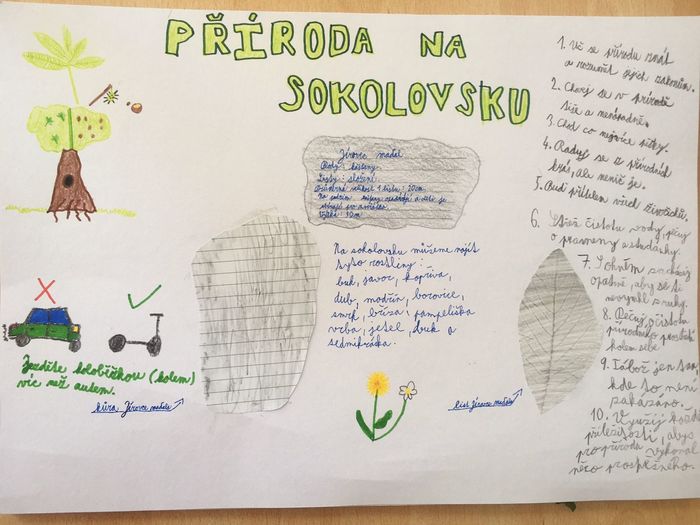 PŘÍRODA NA
SOKOLOVSKU
Jírovec maďal
Plody: kaštany.
Listy: složené.
velikost 1 listu: 20cm.
Na podzim opadají a děti je
sbírají
Výška: 30m
Na sokolovsku můžeme najít
tyto rostliny:
buk, javor, kopřiva,
dub, modřín, borovice,
smrk, bříza, pampeliška
vrba, jetel, buk a
sedmikráska.
Jezděte koloběžkou (kolem)
víc než autem.
kůra Jírovce maďalu
list Jírovce maďalu
1. Uč se přírodu znát
a rozumět jejich zákonům.
2. Chovej se v přírodě
tiše a nenápadně.
3. Choď co nejvíce pěšky.
4. Raduj se z přírodních
krás, ale nenič je.
5. Buď přítelem všech živočichů.
6. Střež čistotu vody, pečuj
o prameny a studánky.
7. S ohněm zacházej
opatrně, aby se ti
nevymkl z ruky.
8. Pečuj o čistotu
přírodního prostředí
kolem sebe.
9. Táboř jen tam,
kde to není
zakázáno.
10. Využij každé
příležitosti, abys
pro přírodu vykonal
něco prospěšného.